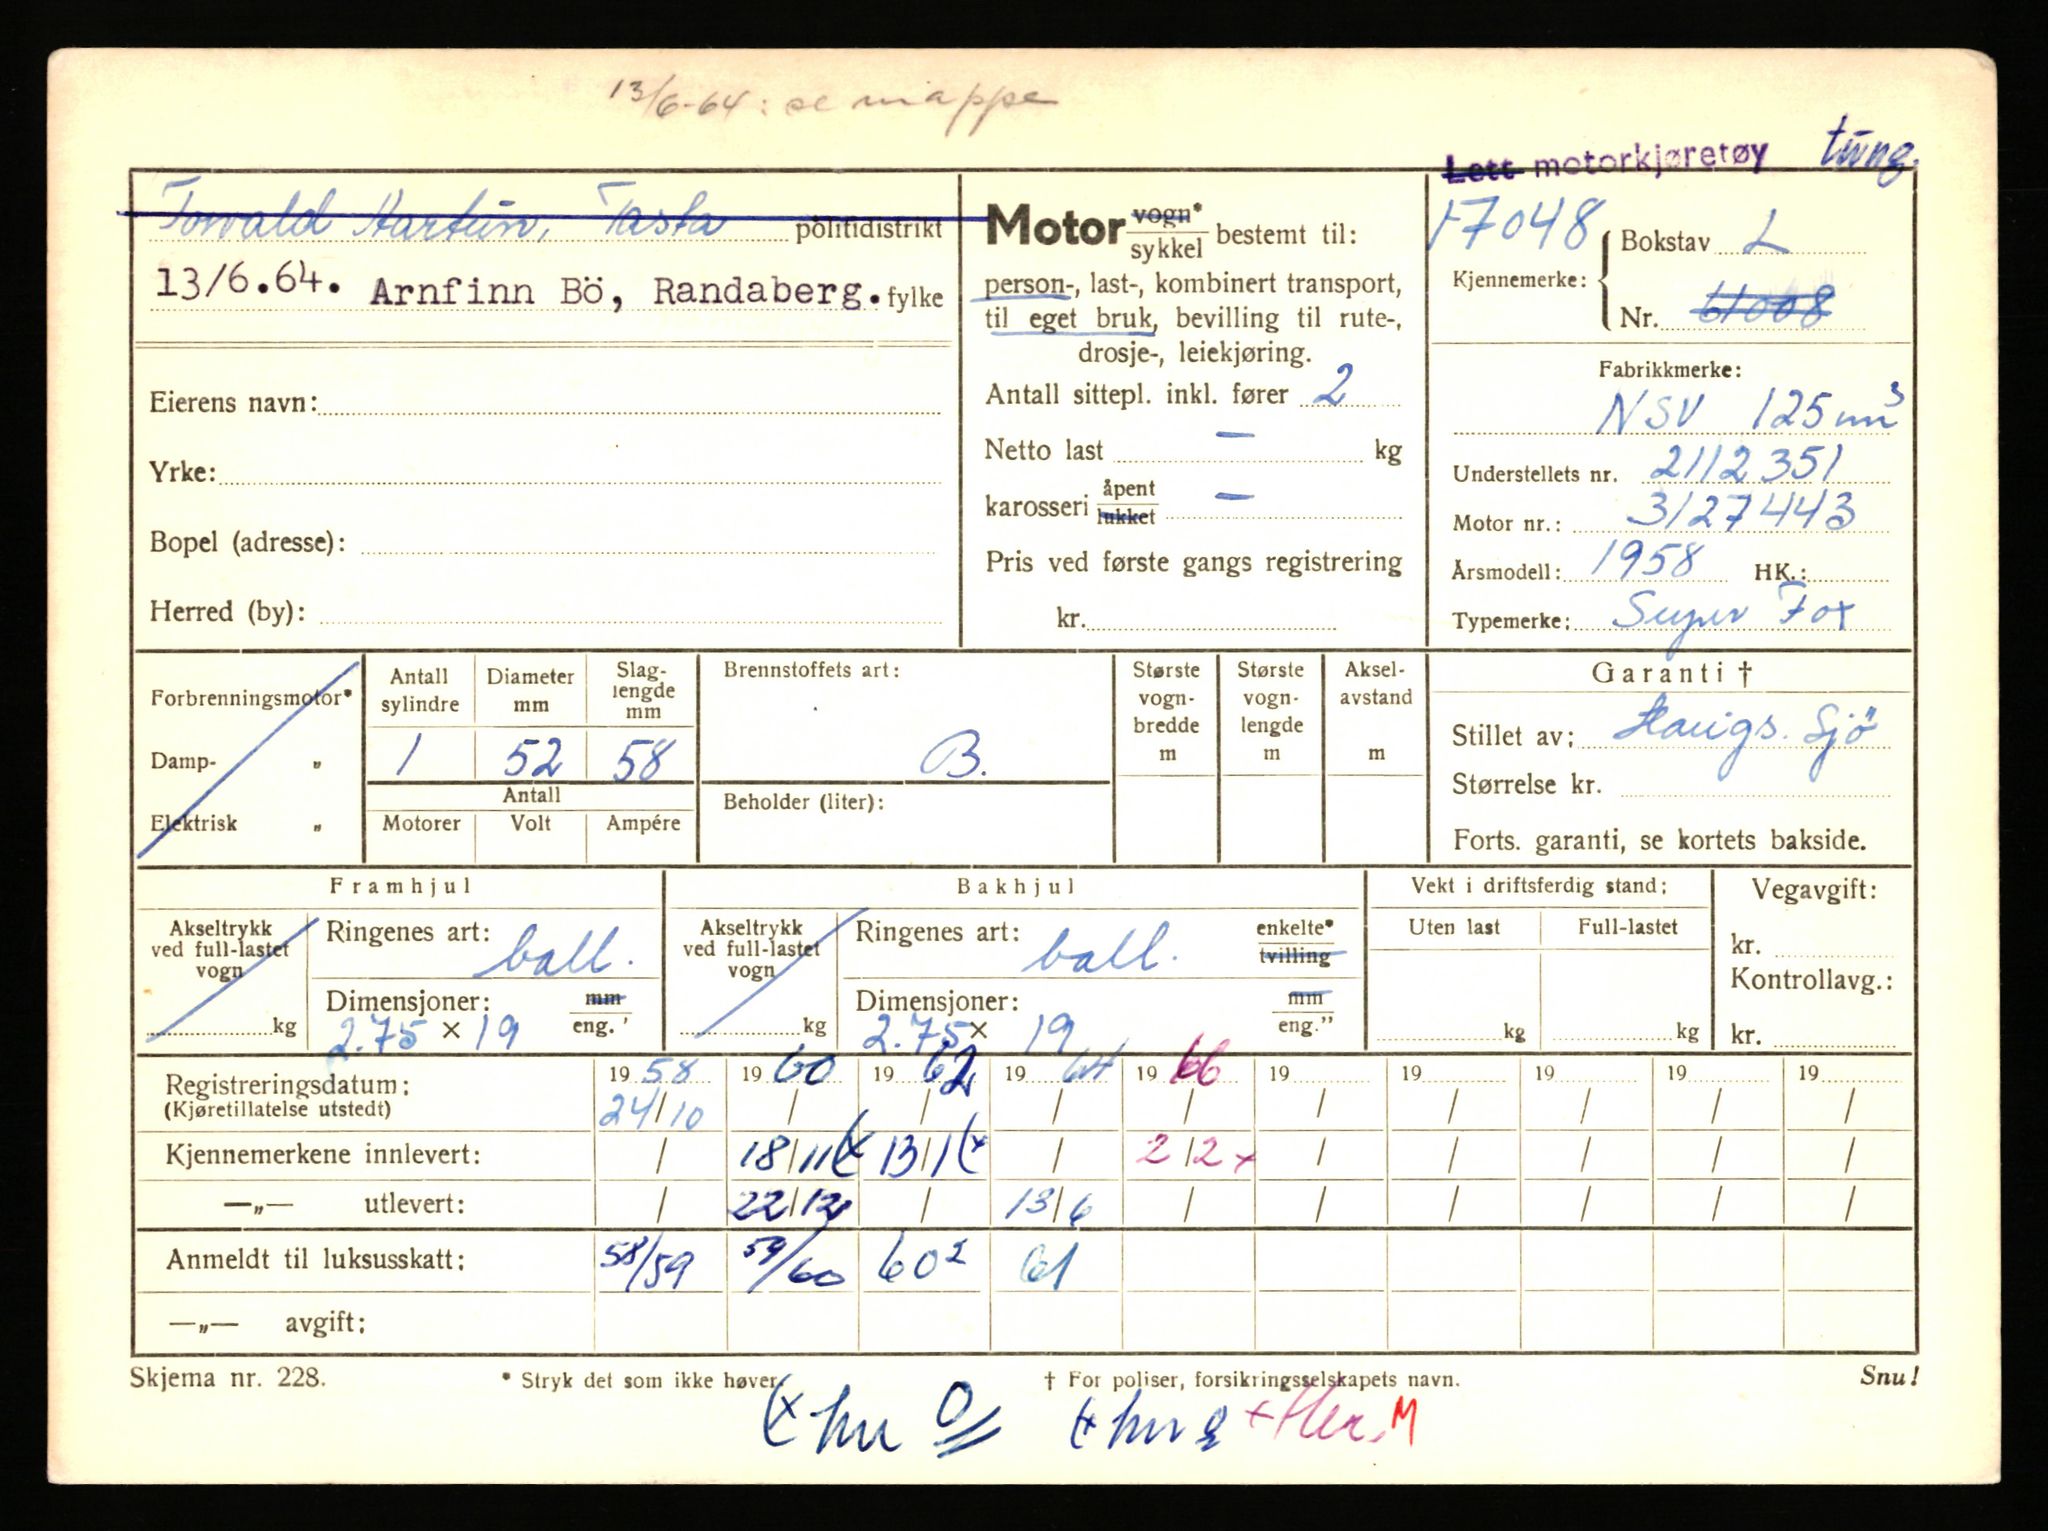 13/6-64: se mappe
Lett motorkjøretøy tung.
Torvald Hartun, Tasta politidistrikt
13/6.64. Arnfinn Bö, Randaberg. fylke
Eierens navn:
Yrke:
Bopel (adresse):
Herred (by):
Motor vogn* / sykkel bestemt til:
person-, last-, kombinert transport,
til eget bruk, bevilling til rute-,
drosje-, leiekjøring.
Antall sittepl. inkl. fører 2
Netto last — kg
karosseri åpent / lukket —
Pris ved første gangs registrering
kr.
17048 Bokstav L
Kjennemerke:
Nr. 61008
Fabrikkmerke:
NSV 125 cm³
Understellets nr. 2112351
Motor nr.: 3127443
Årsmodell: 1958 HK.:
Typemerke: Super Fox
Forbrenningsmotor*
Damp- „
Elektrisk „
Antall sylindre Diameter mm Slag-lengde mm
1 52 58
Antall
Motorer Volt Ampére
Brennstoffets art:
B.
Beholder (liter):
Største vogn-bredde m Største vogn-lengde m Aksel-avstand m
Garanti †
Stillet av: Haugs. Sjö
Størrelse kr.
Forts. garanti, se kortets bakside.
Framhjul
Akseltrykk ved full-lastet vogn kg
Ringenes art: ball.
Dimensjoner: mm / eng. '
2.75 × 19
Bakhjul
Akseltrykk ved full-lastet vogn kg
Ringenes art: ball. enkelte* / tvilling
Dimensjoner: mm / eng."
2.75 × 19
Vekt i driftsferdig stand:
Uten last Full-lastet
kg kg
Vegavgift:
kr.
Kontrollavg.:
kr.
Registreringsdatum: 1958 1960 1962 1964 1966 19 19 19 19 19
(Kjøretillatelse utstedt) 24/10 / / / / / / / / /
Kjennemerkene innlevert: / 18/11(x 13/1(x / 2/2x / / / / /
—„— utlevert: / 22/12 / 13/6 / / / / / /
Anmeldt til luksusskatt: 58/59 59/60 60² 61
—„— avgift:
Skjema nr. 228. * Stryk det som ikke høver. † For poliser, forsikringsselskapets navn. Snu!
M